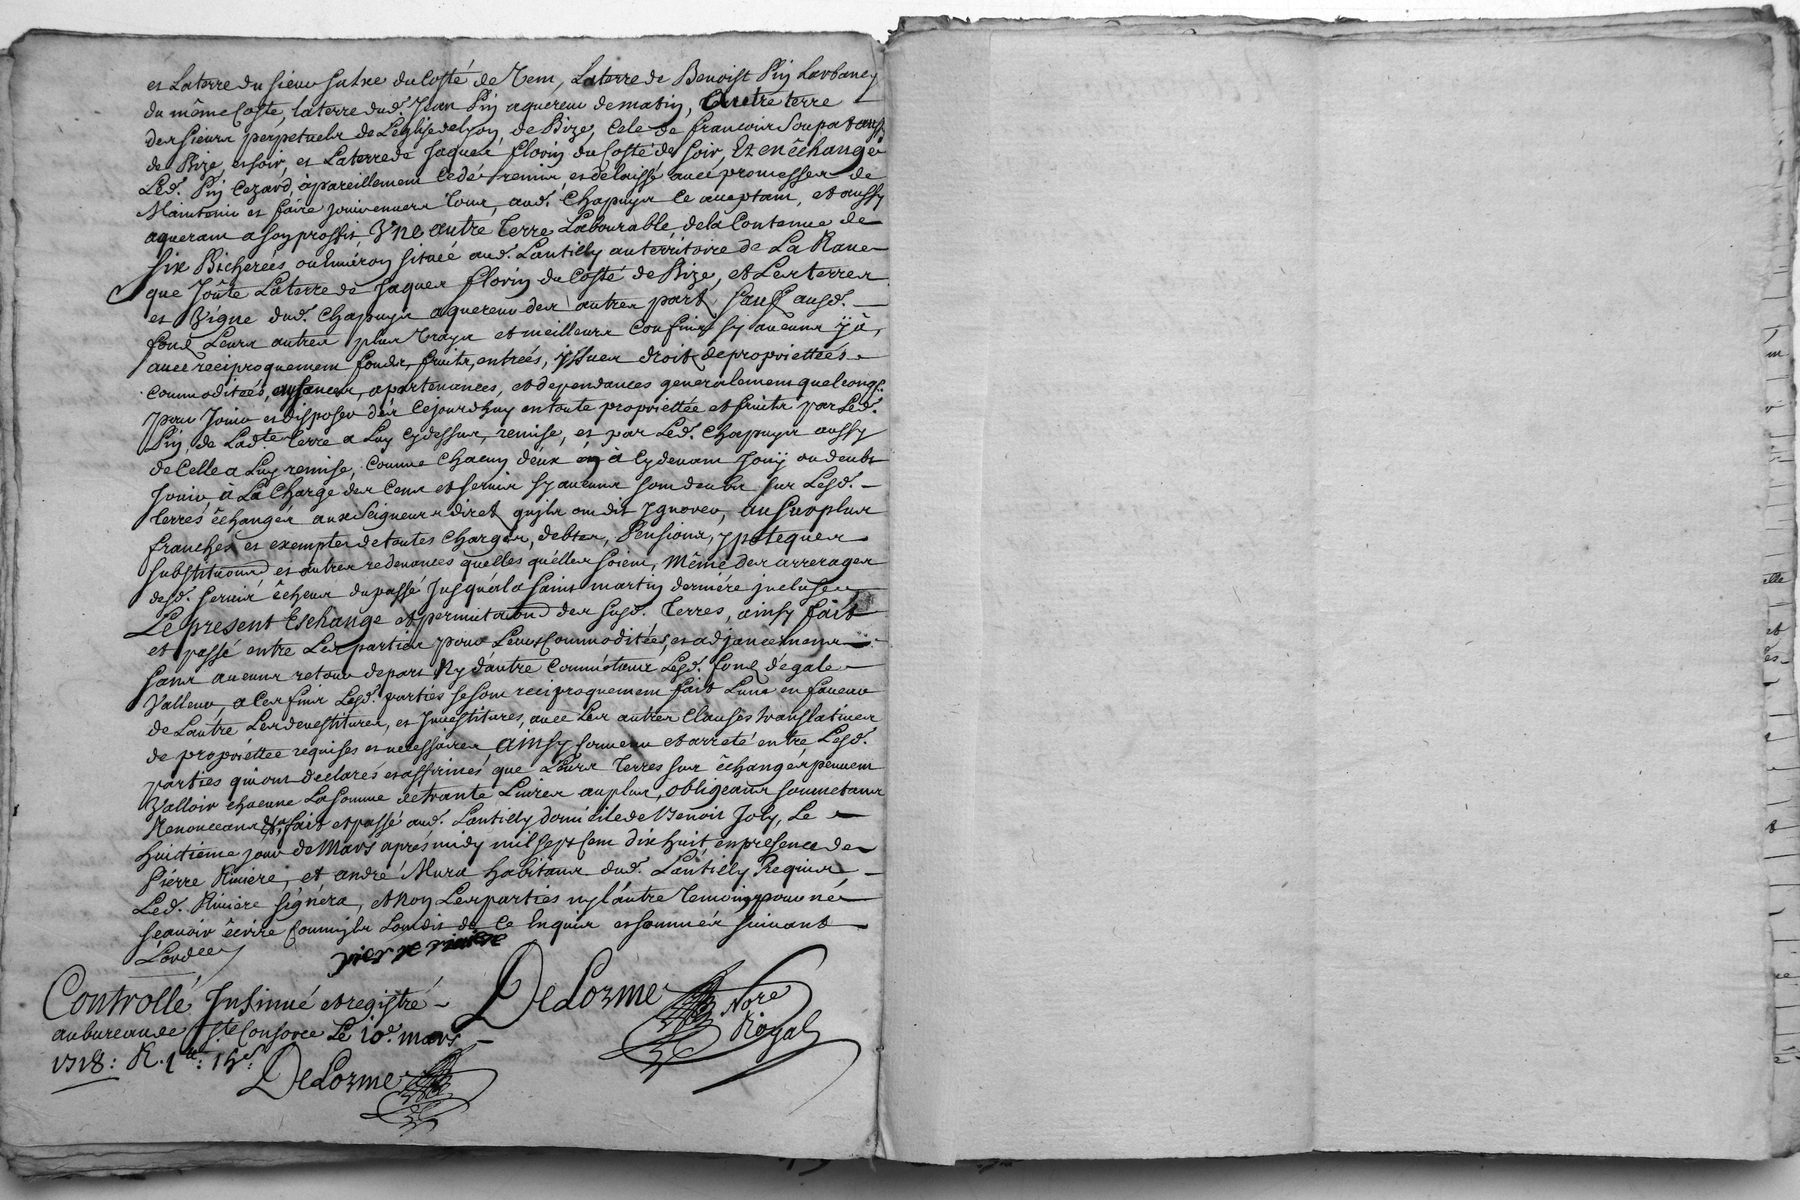 et La terre du sieur Sutre du Costé de Vent, La terre de Benoist Pin Larbancy
du même Costé, la terre dud.t Jean Pin aquereur de matin, Autre terre
des sieurs perpetuels de L'église de Lyon, de Bize, Cele de francois Soupat aussy
de Bize, et soir, et La terre de Jaques florin du Costé de soir, Et en êchange
Led. Pin Cezard, a pareillement Cedé remis, et delaissé avec promesses de
Maintenir et faire jouir envers Tous, aud. Chapuys Ce aceptant, et aussy
aquerant a son proffit Une autre Terre Labourable de la Contenue de
six Bicherées ou Environ située aud. Lantilly au territoire de La Raue
que Joûte La terre de Jaques florin du Costé de Bize, et Les terres
et Vigne dud. Chapuys aquereur des autres part, Sauf ausd.
fond Leurs autres plus Vrays et meilleurs Confins sy aucuns ÿ a,
avec reciproquement fonds, fruits, entrées, issues droits de proprietteés
Commoditées, aysances, apartenances, et dependances generalement quelconq.
pour Jouir et disposer dés Cejourdhuy en toute propriettée et fruits par Led.
Pin de Ladte terre a Luy Cydessus, remise, et par Led. Chapuys aussy
de Celle a Luy remise, Comme Chacun deux en a Cydevant Jouÿ ou deub
Jouir à La Charge des Cens et servis sy aucuns sont deubs sur Lesd.
terres êchangés aux Seigneurs diret quils ont dit Ignorer, au surplus
franches et exemptes de toutes Charges, debtes, Pensions, ypoteques
substitutions et autres redevances quelles quélles soient, Même des arrerages
desd. servis êcheus du passé Jusquá la Saint martin derniére incluse
Le present Eschange et permutation des susd. Terres, ainsy fait
et passé entre Les parties pour Leurs Commoditées, et adjancements
sans aucuns retour de part Ny d'autre Lesd. fond d'egale
Valleur, a Ces fins Lesd. parties se sont reciproquement fait L'une en faveur
de L'autre Les devestitures, et Investitures, avec Les autres Clauses translatives
de propriettée requises et necessaires, Ainsy Convenu et arreté entre Lesd.
parties qui ont declarés et affirmés que Leurs Terres sus êchangés peuvent
Valloir chacune La somme de trante Livres au plus, obligeans soumetans
Renonceans &a, fait et passé aud. Lantilly domicile de Benoit Joly, Le
huitieme jour de Mars aprés midy mil sept cent dix huit en presence de
Pierre Riviere, et andré Mura habitans dud. Lantilly Requis,
Led. Riviere signéra, et Non Les parties ny L'autre Temoin pour ne
sçavoir écrire Comm'ils L'ont dit de Ce Enquis et sommés suivant
L'ordce
pierre riviere
Controllé Insinué et registré
au bureau de Ste Consorce Le 10e mars
1718: R. 1 tt: 15 s
DeLorme Nore
Royal
DeLorme